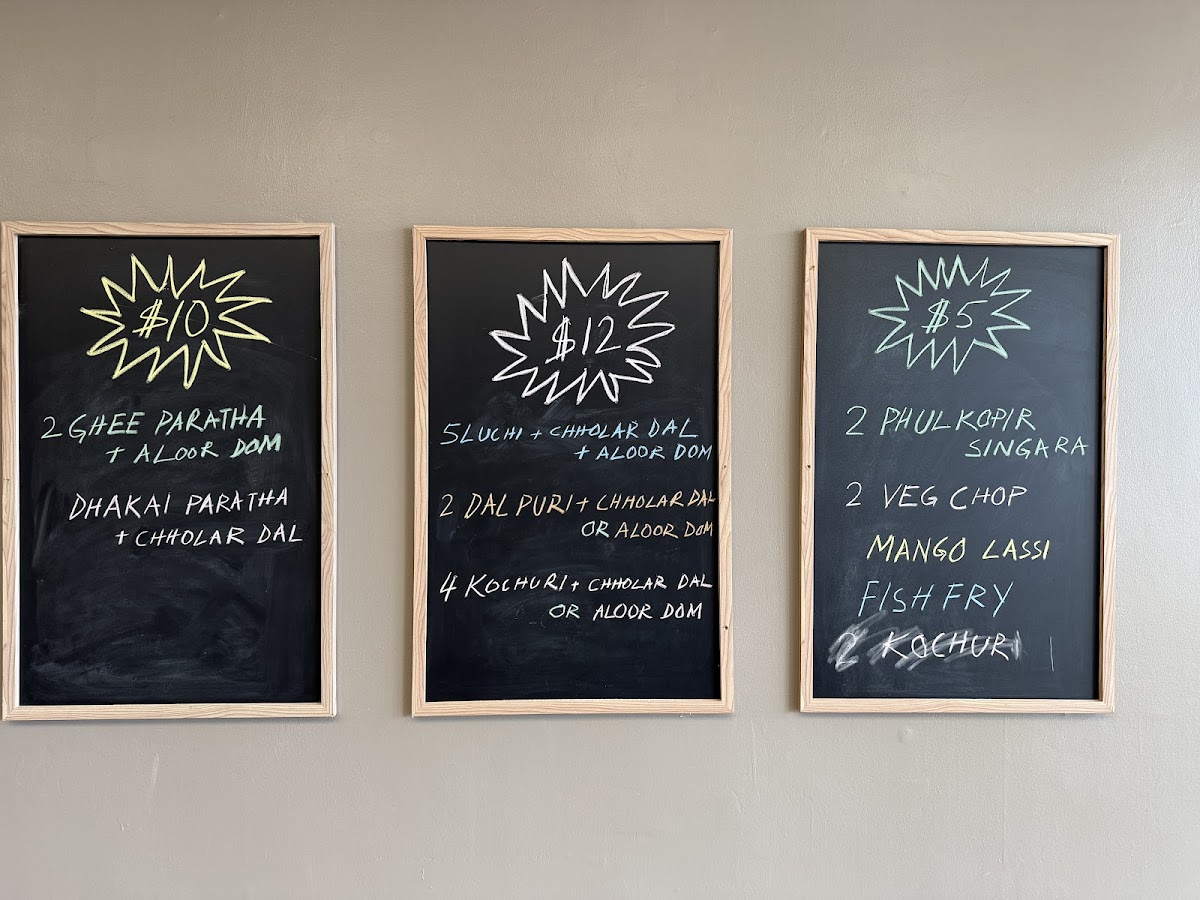 $10
2 GHEE PARATHA
+ ALOOR DOM
DHAKAI PARATHA
+ CHHOLAR DAL
$12
5 LUCHI + CHHOLAR DAL
+ ALOOR DOM
2 DAL PURI + CHHOLAR DAL
OR ALOOR DOM
4 KOCHURI + CHHOLAR DAL
OR ALOOR DOM
$5
2 PHULKOPIR
SINGARA
2 VEG CHOP
MANGO LASSI
FISH FRY
2 KOCHURI